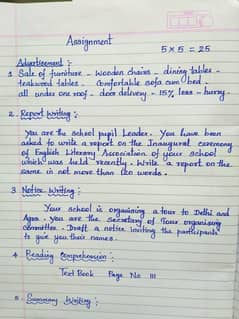 Assignment
5 x 5 = 25
Advertisement :
1. Sale of furniture - wooden chairs - dining tables -
teakwood tables - comfortable sofa cum bed -
all under one roof - door delivery - 15% less - hurry.
2. Report Writing :
You are the school pupil Leader. You have been
asked to write a report on the Inaugural ceremony
of English Literary Association of your school
which was held recently. Write a report on the
same in not more than 100 words.
3 Notice Writing :
Your school is organising a tour to Delhi and
Agra. You are the secretary of Tour organising
committee. Draft a notice inviting the participants
to give you their names.
4 Reading Comprehension :
Text Book Page No 111
5 Summary Writing :